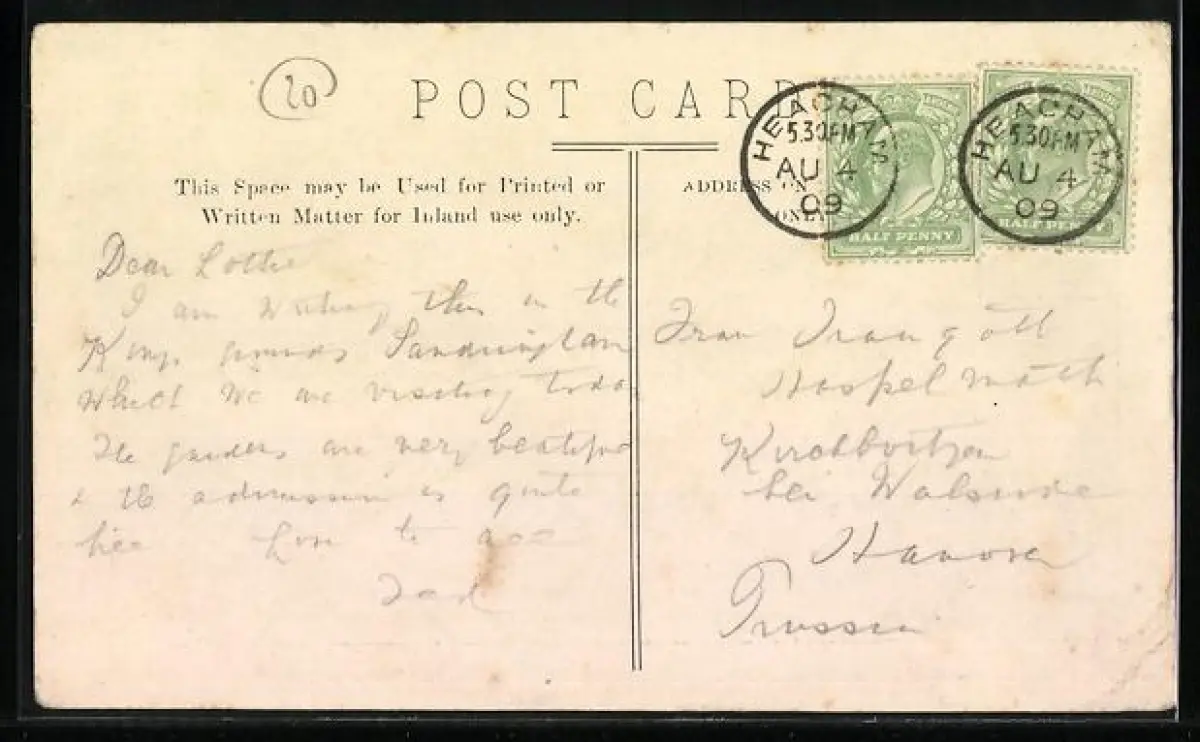 20
POST CARD
This Space may be Used for Printed or
Written Matter for Inland use only.
ADDRESS ON
ONLY
HEACHAM
5.30PM
AU 4
09
HALF PENNY
HEACHAM
5.30PM
AU 4
09
HALF PENNY
Dear Lottie
I am writing this in the
Kings grounds Sandringham
which we are visiting today
The gardens are very beautiful
& the admission is quite
free Love to all
Dad
Frau
Hanover
Prussia